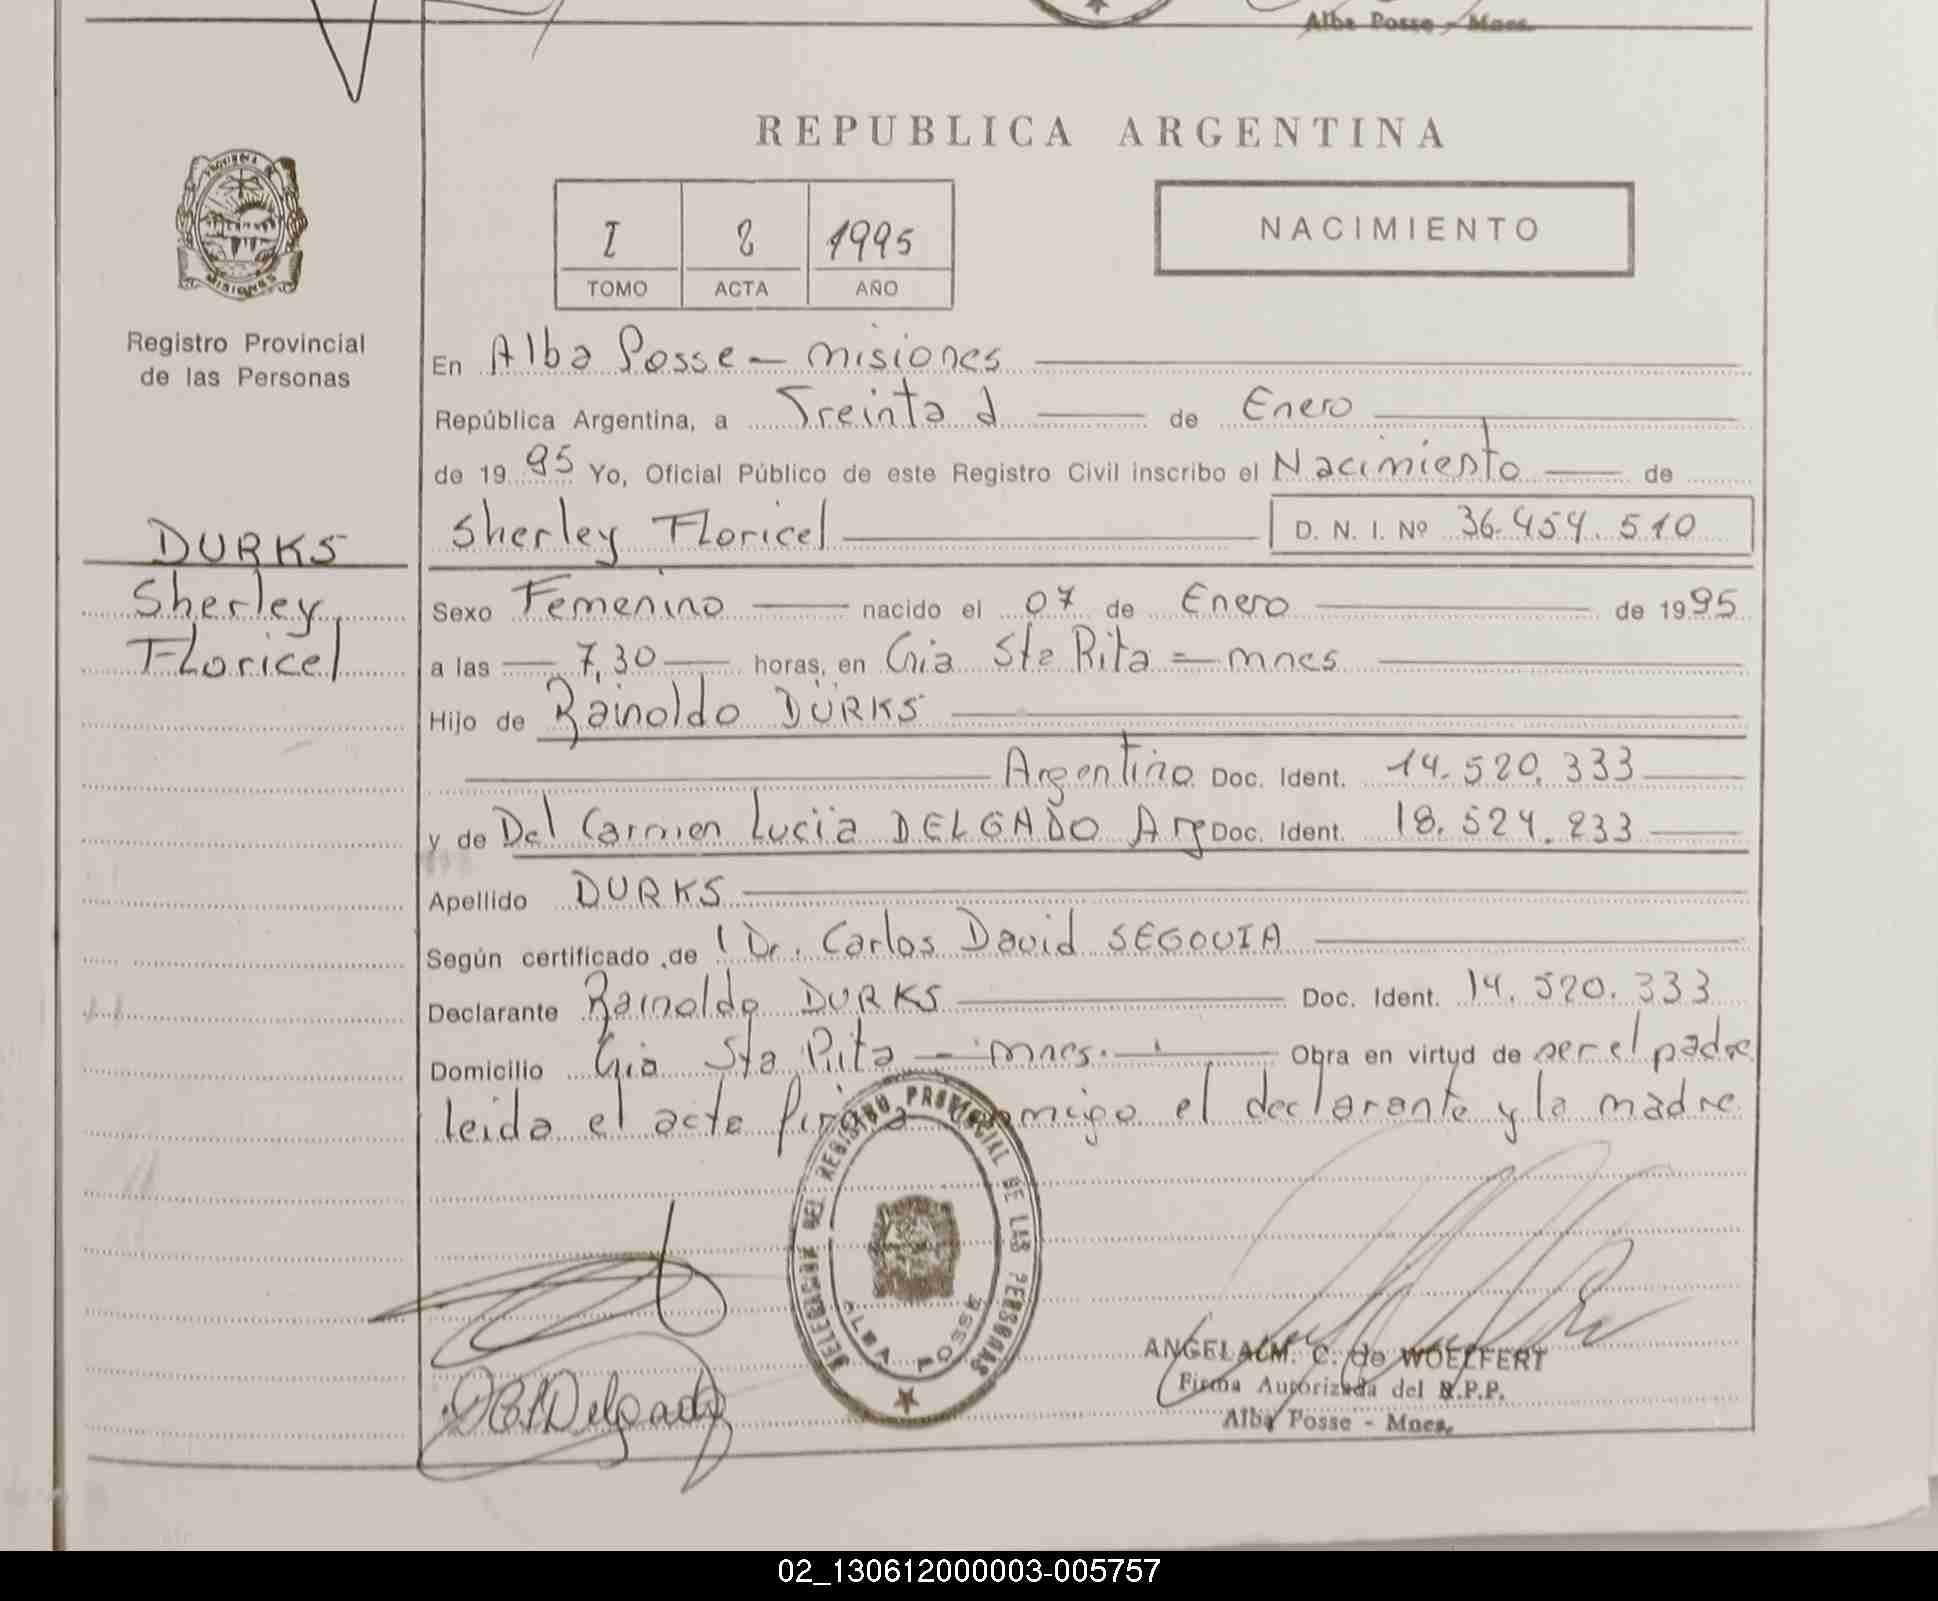 Alba Posse - Mnes.
REPUBLICA ARGENTINA
PROVINCIA DE
MISIONES
I 2 1995
TOMO ACTA AÑO
NACIMIENTO
Registro Provincial
de las Personas
En Alba Posse - misiones
República Argentina, a Treinta d de Enero
de 1995 Yo, Oficial Público de este Registro Civil inscribo el Nacimiento de
Sherley Floricel D. N. I. Nº 36.454.510
DURKS
Sherley
Floricel
Sexo Femenino nacido el 07 de Enero de 1995
a las 7,30 horas, en Cnia Sta Rita = mnes
Hijo de Rainoldo DÜRKS
Argentino Doc. Ident. 14.520.333
y de Del Carmen Lucia DELGADO Arg Doc. Ident. 18.524.233
Apellido DURKS
Según certificado de Dr. Carlos David SEGOVIA
Declarante Rainoldo DURKS Doc. Ident. 14.520.333
Domicilio Cnia Sta Rita - mnes. Obra en virtud de ser el padre
leida el acta firma conmigo el declarante y la madre
DELEGACION DEL REGISTRO PROVINCIAL DE LAS PERSONAS
ALBA POSSE
Delgado
ANGELA M. C. de WOELFERT
Firma Autorizada del R.P.P.
Alba Posse - Mnes.
02_130612000003-005757